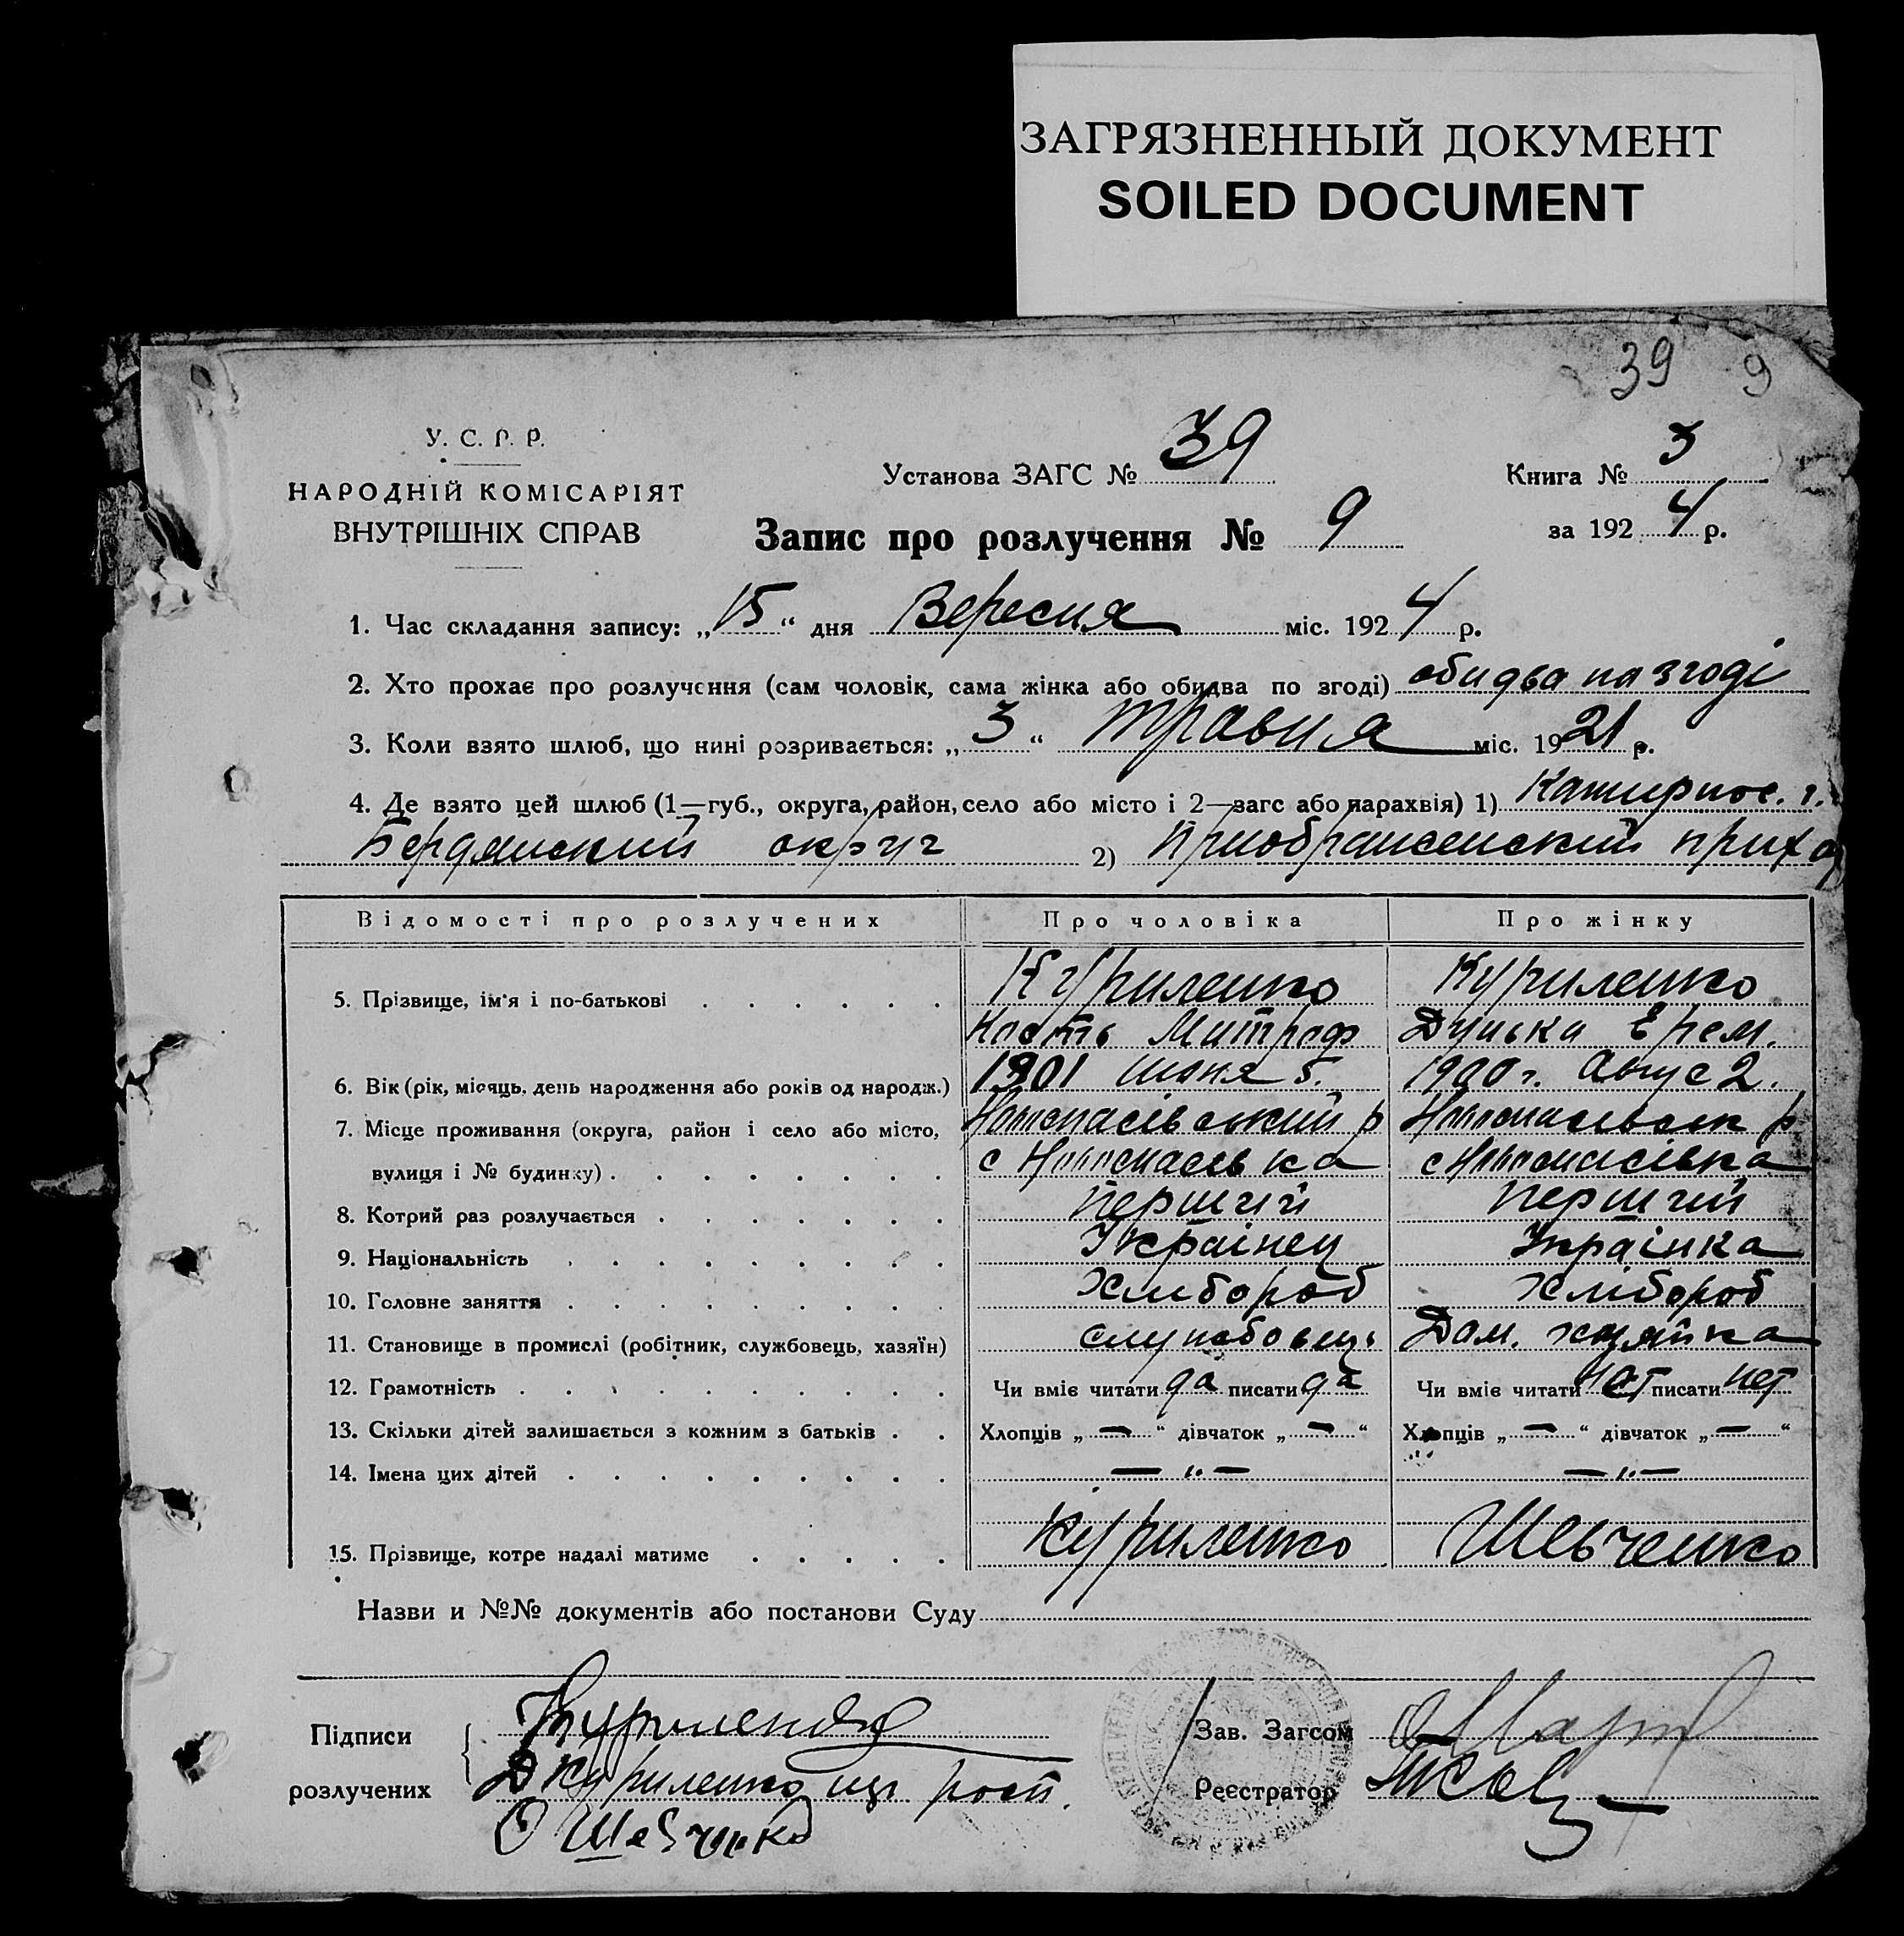 ЗАГРЯЗНЕННЫЙ ДОКУМЕНТ
SOILED DOCUMENT
39 9
У. С. Р. Р.
НАРОДНІЙ КОМІСАРІЯТ
ВНУТРІШНІХ СПРАВ
Установа ЗАГС № 39
Книга № 3
Запис про розлучення № 9
за 1924 р.
1. Час складання запису: „15“ дня Вересня міс. 1924 р.
2. Хто прохає про розлучення (сам чоловік, сама жінка або обидва по згоді) обидва па згоді
3. Коли взято шлюб, що нині розривається: „3“ травня міс. 1921 р.
4. Де взято цей шлюб (1—губ., округа, район, село або місто і 2—загс або парахвія) 1)
Бердянский округ 2) Приображенский приход
Відомості про розлучених Про чоловіка Про жінку
5. Прізвище, ім'я і по-батькові Куриленко Куриленко
Кость Митроф Дунька Ерем.
6. Вік (рік, місяць, день народження або років од народж.) 1901 июня 5. 1900 г. Авгус 2.
7. Місце проживання (округа, район і село або місто, Новоспасівський р Новоспасівськ р
вулиця і № будинку) с Новоспасівка с Новоспасівка
8. Котрий раз розлучається Перший Перший
9. Національність Українец Українка
10. Головне заняття Хлибороб Хлібороб
11. Становище в промислі (робітник, службовець, хазяїн) службовець Дом. хазяйка
12. Грамотність Чи вміє читати да писати да Чи вміє читати нет писати нет
13. Скільки дітей залишається з кожним з батьків Хлопців „—“ дівчаток „—“ Хлопців „—“ дівчаток „—“
14. Імена цих дітей —„— —„—
15. Прізвище, котре надалі матиме Куриленко Шевченко
Назви и №№ документів або постанови Суду
Підписи Куриленко Зав. Загсом
розлучених Д Куриленко Реєстратор
О Шевченко